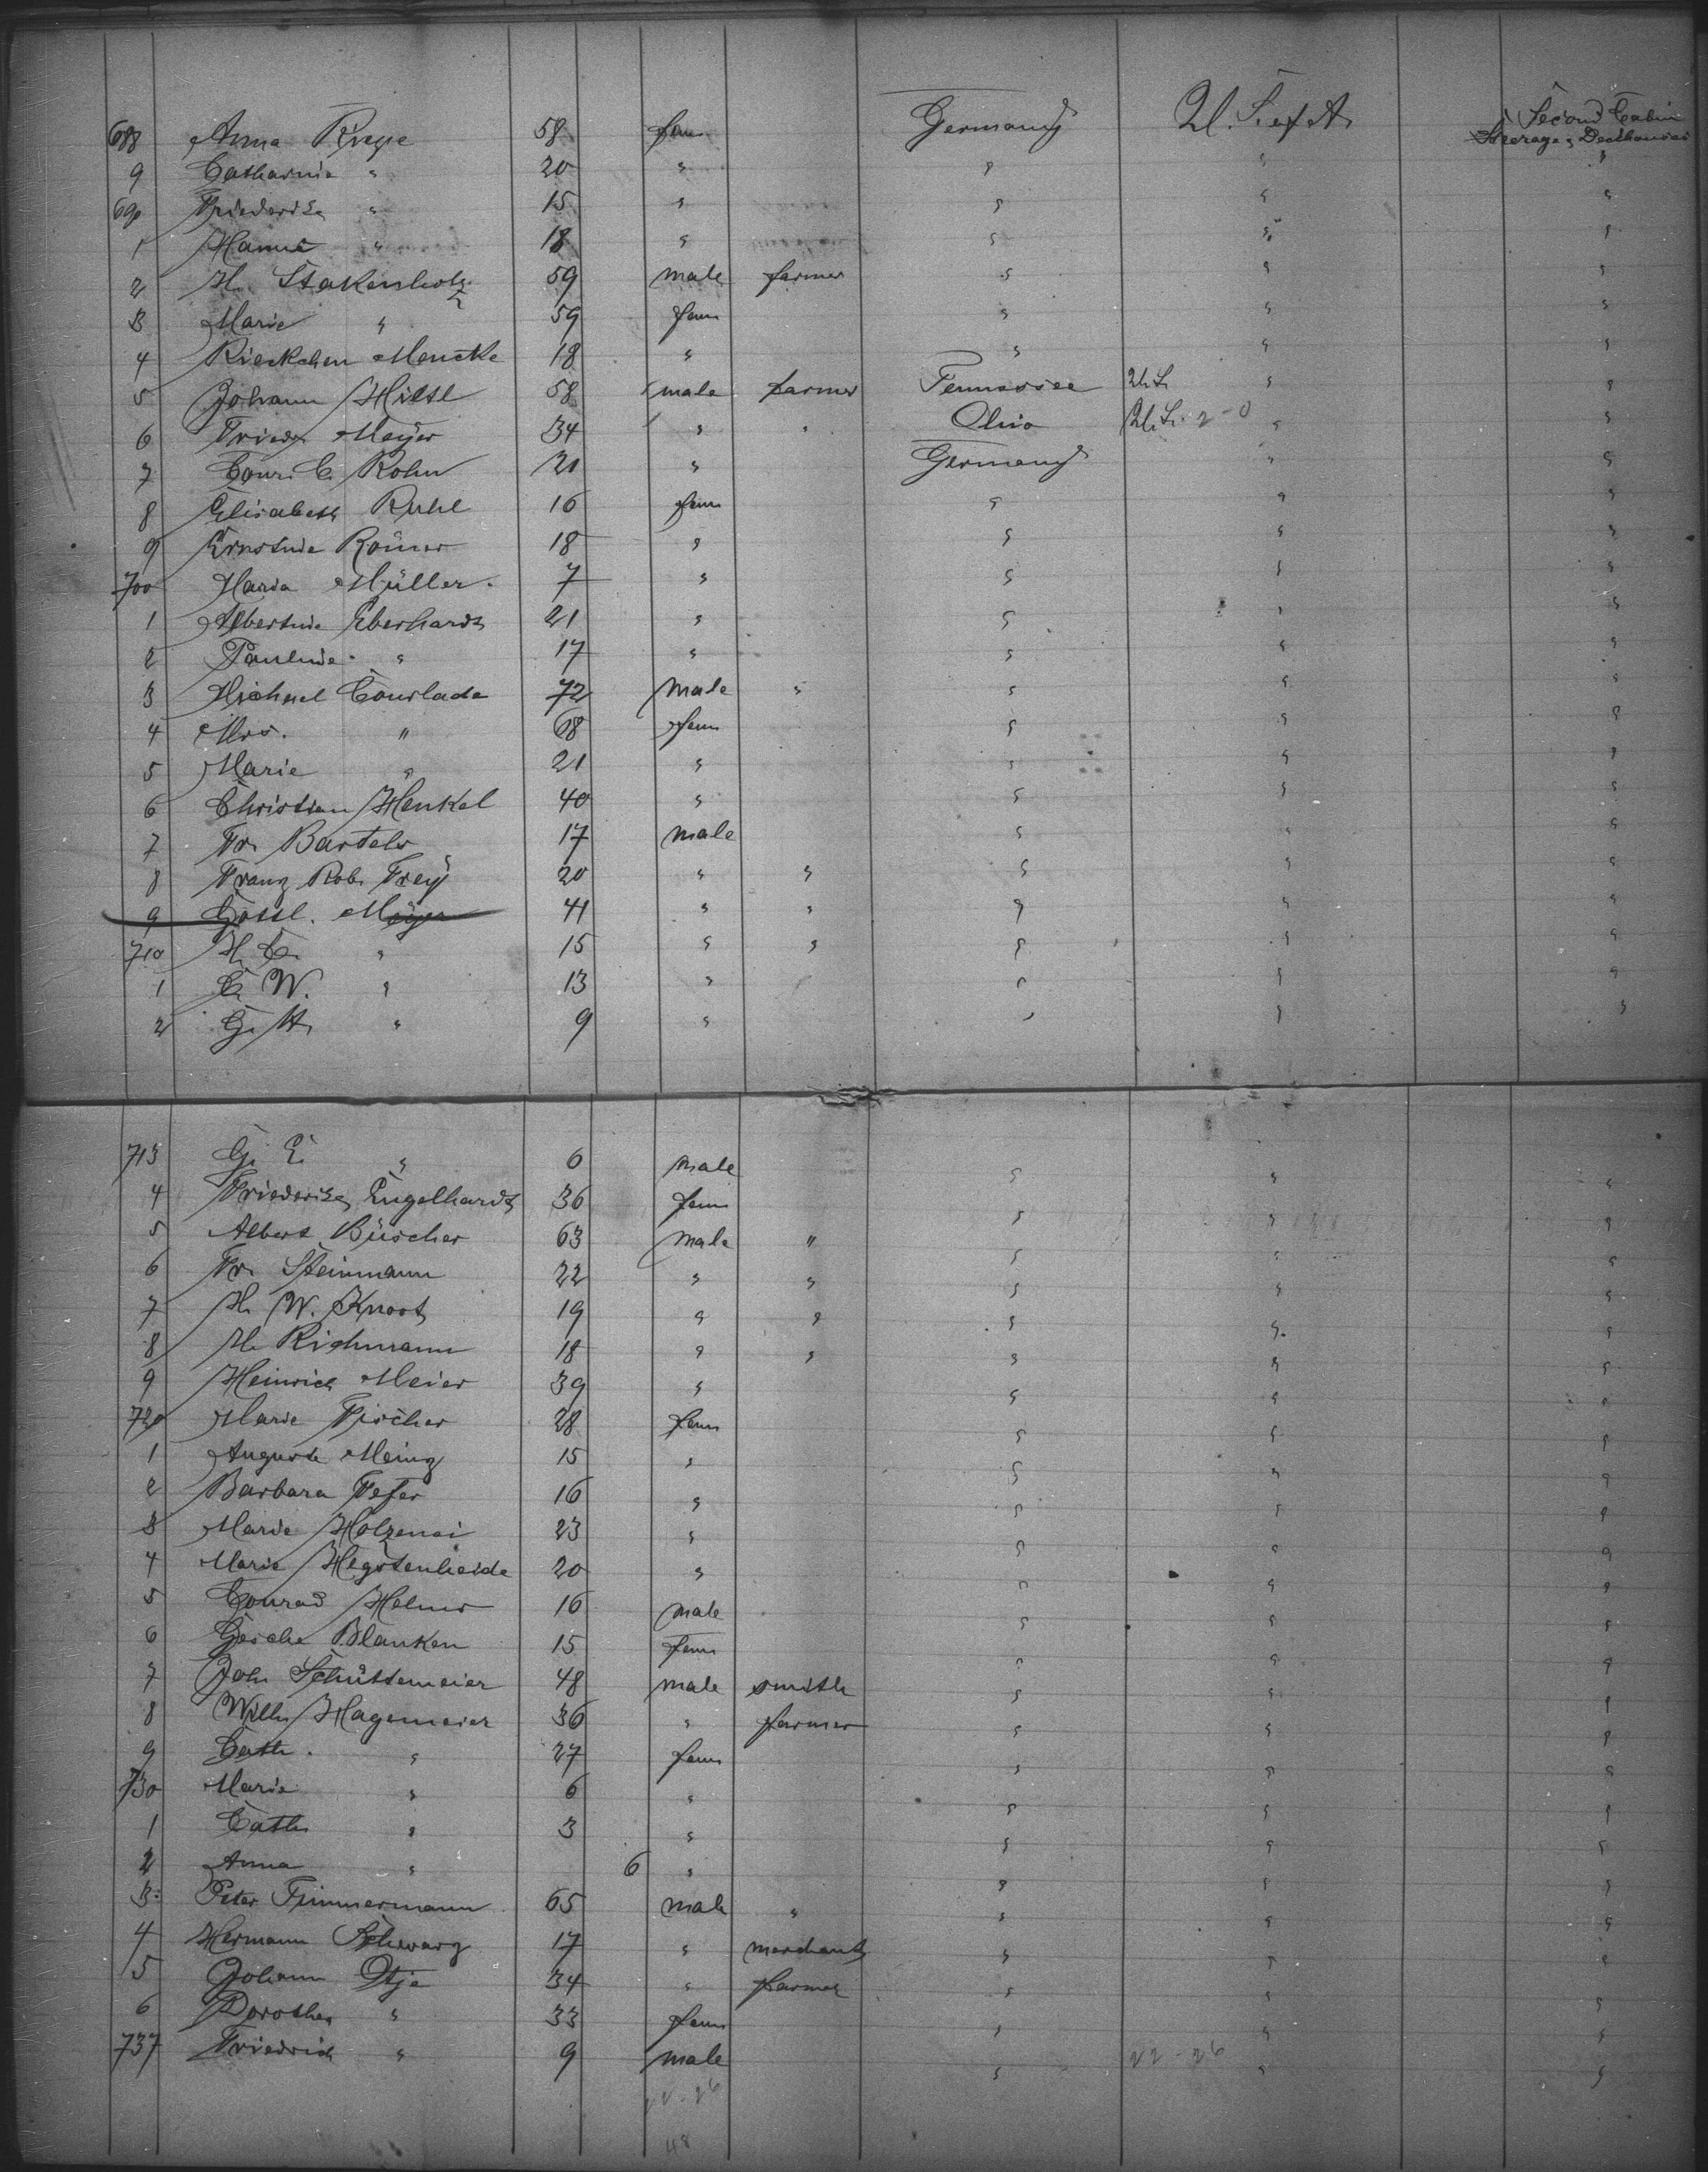 Second Cabin
688 Anna Riepe 58 fem Germany U. S. of A. Steerage, Deckhouses
9 Catharine " 20 " " " "
690 Friederike " 15 " " " "
1 Hanne " 18 " " " "
2 H. Stakenholz 59 male farmer " " "
3 Marie " 59 fem " " "
4 Rieckchen Mencke 18 " " " "
5 Johann Hiltl 58 male farmer Tennessee U.S. " "
6 Friedr. Meyer 34 " " Ohio U.S. 2-0 " "
7 Conr. C. Rohn 21 " Germany " "
8 Elisabeth Ruhl 16 fem " " "
9 Ernstine Römer 18 " " " "
700 Maria Müller 7 " " " "
1 Albertine Eberhardt 21 " " " "
2 Pauline " 17 " " " "
3 Michael Courlada 72 male " " " "
4 Mrs. " 68 fem " " "
5 Marie " 21 " " " "
6 Christian Henkel 40 " " " "
7 Fr. Bartels 17 male " " "
8 Franz Rob. Frey 20 " " " " "
9 Gottl. Meyer 41 " " " " "
710 H. C. " 15 " " " " "
1 C. W. " 13 " " " "
2 G. H. " 9 " " " "
713 G. E. " 6 male " " "
4 Friederike Engelhardt 36 fem " " "
5 Albert Büscher 63 male " " " "
6 Fr. Steinmann 22 " " " " "
7 H. W. Knoot 19 " " " " "
8 H. Richmann 18 " " " " "
9 Heinrich Meier 39 " " " "
720 Marie Fischer 28 fem " " "
1 Auguste Meinz 15 " " " "
2 Barbara Fefer 16 " " " "
3 Marie Holzenei 23 " " " "
4 Marie Hegstenheide 20 " " " "
5 Conrad Helms 16 male " " "
6 Gesche Blanken 15 fem " " "
7 Joh. Schüttemeier 48 male smith " " "
8 Wilh. Hagemeier 36 " farmer " " "
9 Cath. " 27 fem " " "
730 Marie " 6 " " " "
1 Cath. " 3 " " " "
2 Anna " 6 " " " "
3 Peter Timmermann 65 male " " " "
4 Hermann Schwarz 17 " merchant " " "
5 Johann Otje 34 " farmer " " "
6 Dorothea " 33 fem " " "
737 Friedrich " 9 male " 22-26 " "
22-26
48